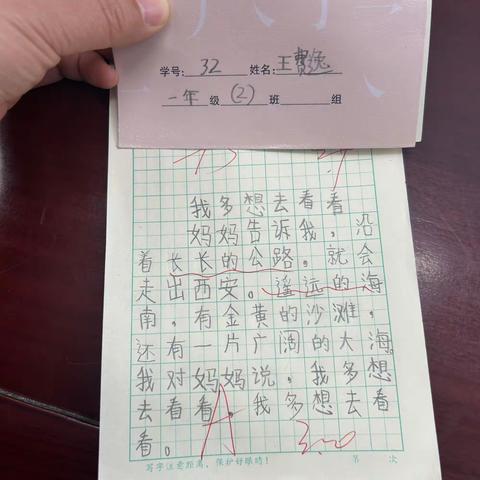 学号: 32 姓名: 王
一年 级 (2) 班 组
我多想去看看
妈妈告诉我，沿
着长长的公路。就会
走出西安。遥远的海
南，有金黄的沙滩，
还有一片广阔的大海。
我对妈妈说，我多想
去看看，我多想去看
看。
A 3.20
写字注意距离，保护好眼睛！ 第 次